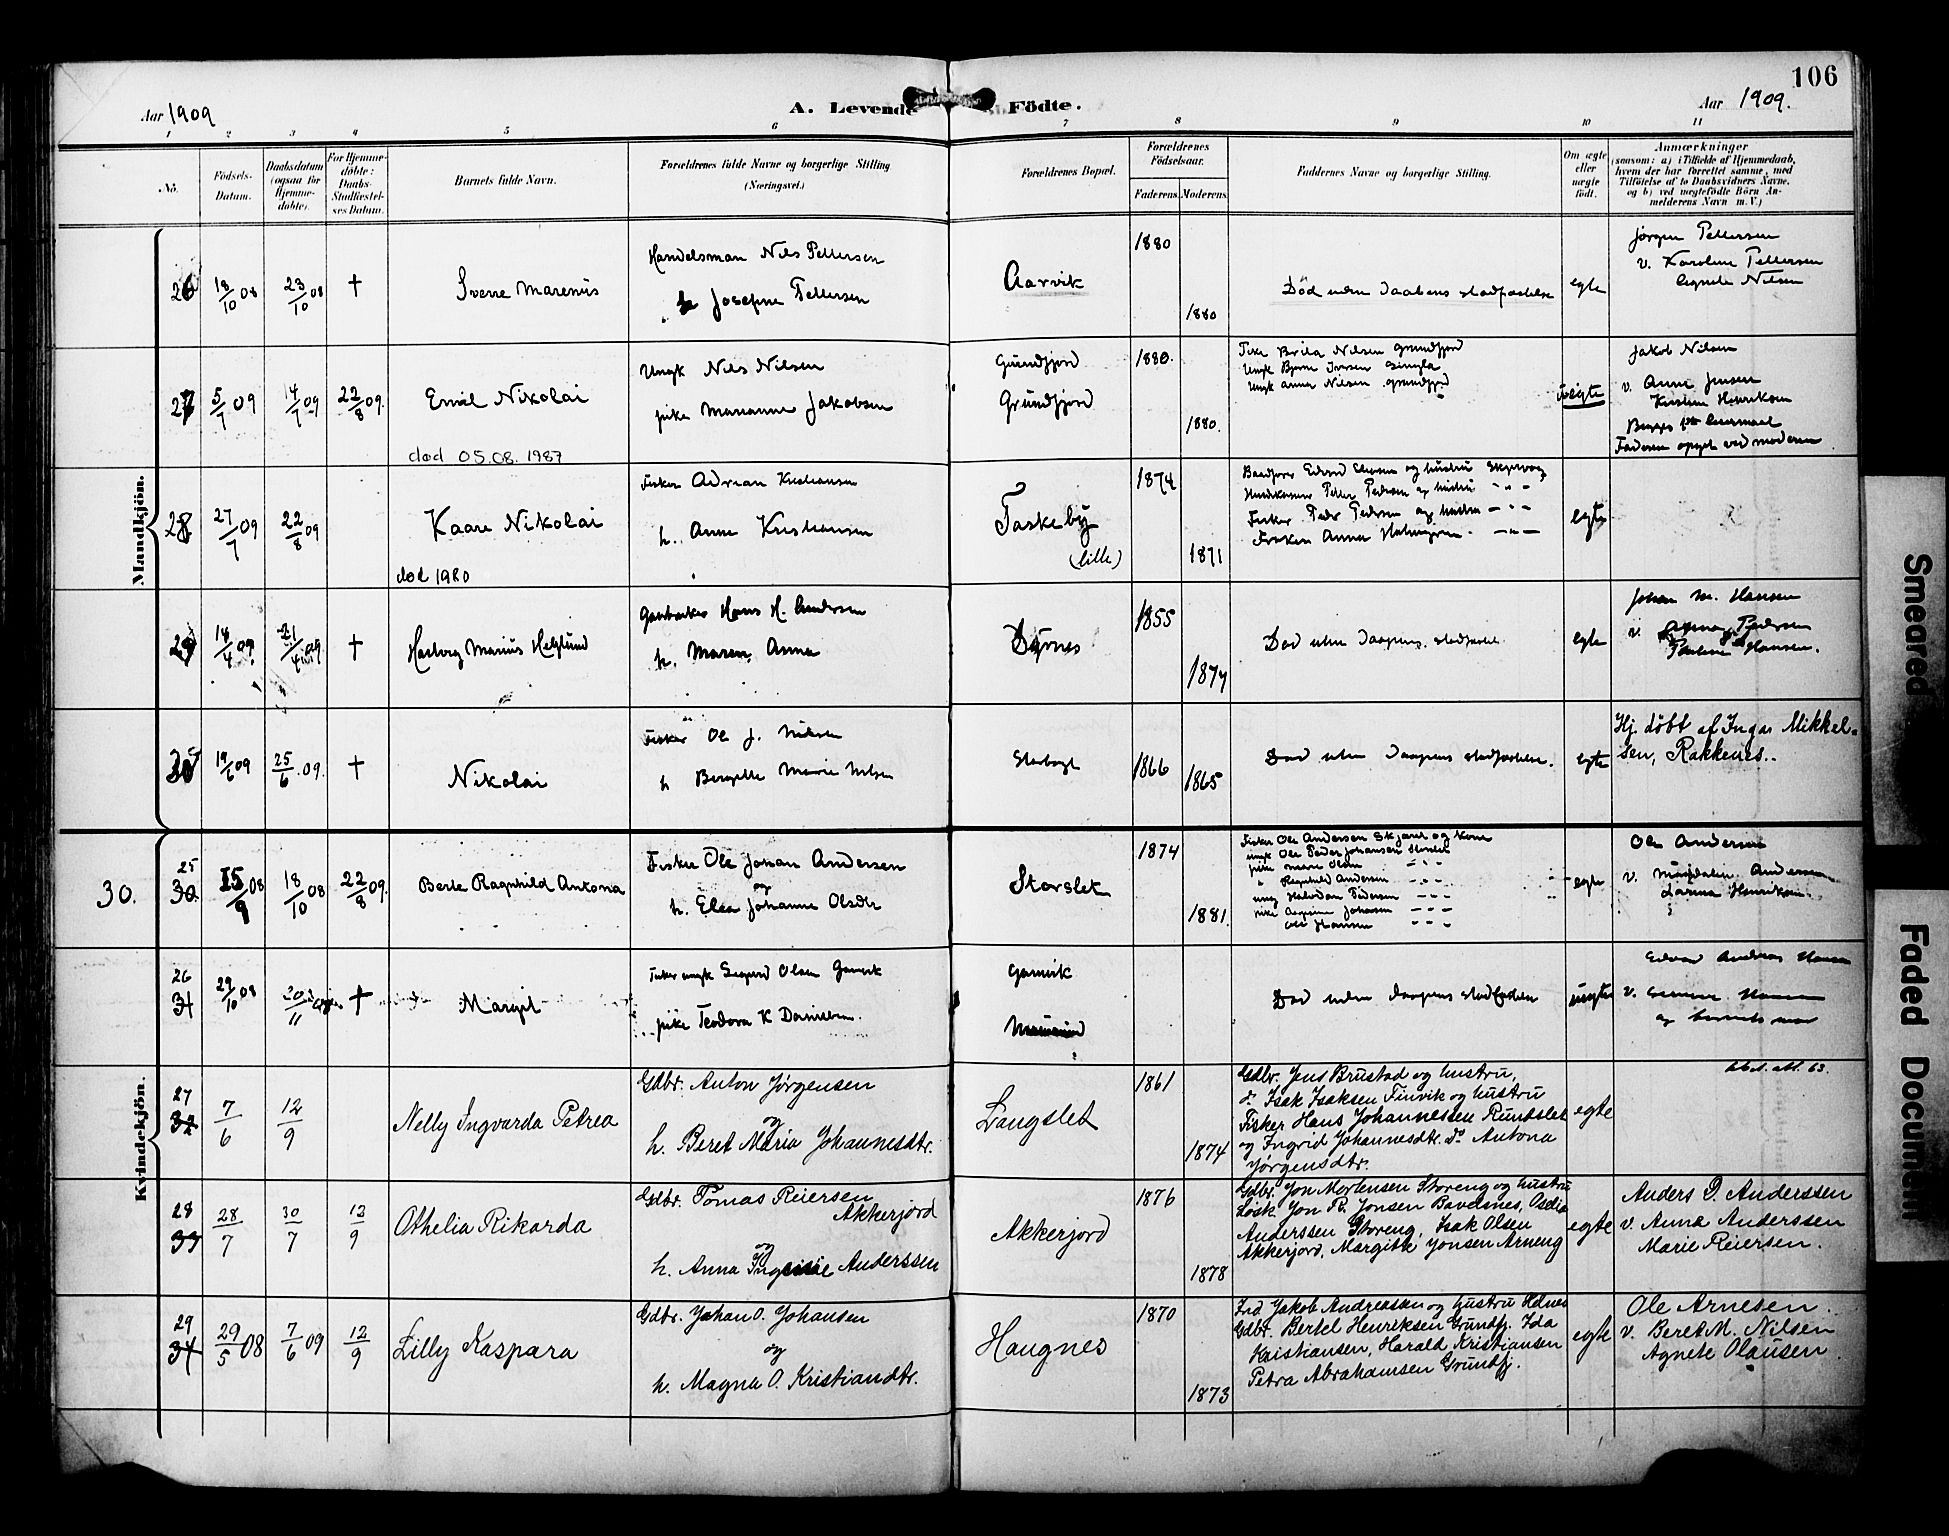 106
Aar 1909
A. Levende Födte.
Aar 1909.
1 2 3 4 5 6 7 8 9 10 11
No.
Födsels-
Datum.
Daabsdatum
(ogsaa for
Hjemme-
döbte).
For Hjemme-
döbte:
Daabs-
Stadfæstel-
ses Datum.
Barnets fulde Navn.
Forældrenes fulde Navne og borgerlige Stilling
(Næringsvei.)
Forældrenes Bopæl.
Forældrenes
Födselsaar.
Faderens. Moderens.
Faddernes Navne og borgerlige Stilling.
Om ægte
eller
uægte
födt.
Anmærkninger
(saasom: a) i Tilfælde af Hjemmedaab,
hvem der har forrettet samme, med
Tilföielse af to Daabsvidners Navne,
og b) ved uægtefödte Börn An-
melderens Navn m. V.)
Mandkjön.
26
18/10 08
23/10 08
†
Sverre Marenius
Handelsman Nils Pettersen
h Josefine Pettersen
Aarvik
1880
1880
Død uden Daabens stadfæstelse
egte
Jørgen Pettersen
v. Karoline Pettersen
Agnete Nilsen
27
5/7 09
14/7 09
22/8 09.
Emil Nikolai
død 05.08.1987
Ungk Nils Nilsen
pike Marianne Jakobsen
Grundfjord
Grundfjord
1880.
1880.
Pike Brita Nilsen Grundfjord
Ungk Bjarne Iversen
Ungk Arne Nilsen grundfjord
uegte
Jakob Nilsen
v. Anne Jensen
Kristine Henriksen
Faderen opget ved moderen
28
27/7 09
22/8 09
Kaare Nikolai
død 1980
Fisker Adrian Kristiansen
h. Anne Kristiansen
Taskeby
(lille)
1874
1871
Fisker Peder Pedersen og hustru
egte
29
14/4 09
21/4 09
†
Hans H. Andersen
h. Maren Anna
Dyrnes
1855
1874
Død uden Daapens stadfæstel
egte
Johan M. Hansen
v. Pedersen
Pauline Hansen.
30
19/6 09
25/6 09.
†
Nikolai
Fisker Ole J. Nilsen
h Bergitte Marie Nilsen
1866
1865
Død uden Daapens stadfæstelse.
egte
Hj. döbt af Ingar Mikkel-
sen, Rakkenes.
Kvindekjön.
30.
25
30.
15/9 08
18/10 08
22/8 09.
Berte Ragnhild Antonia
Fisker Ole Johan Andersen
og
h. Elea Johanne Olsdtr
Storslet
1874
1881
Fisker Ole Andersen Skjaret og kone
ungk Ole Peder Johansen Storslet
pike Marie Olsen
" Ragnhild Andersen
ung Halvdan Pedersen
Ole Hansen
egte
Ole Andersen
v. Magdalen Andersen
Larina Henriksen
26
31
29/10 08
20/11
†
Margit
Fisker ungk Sigurd Olsen Gamvik
pike Teodora K Danielsen
Gamvik
Død uden daapens stadfæstelse
uegte
Edvar Andreas Hansen
v. Hansen
og barnets mor
27
32
7/6
12/9
Nelly Ingvarda Petrea
Gdbr. Anton Jørgensen
og
h. Beret Maria Johannesdtr.
Langslet
1861
1874
Gdbr. Jens Brustad og hustru,
do Isak Isaksen Finvik og hustru
Fisker Hans Johannessen Rundslet
og Ingrid Johannesdtr. Do Antona
Jørgensdtr.
egte
28
33
28/7
30/7
12/9
Othelia Rikarda
Gdbr. Tomas Reiersen
Akkerjord
og
h. Anna Andersen
Akkerjord
1876
1878
Gdbr. Jon Mortensen Storeng og hustru
Løsk Jon R. Jonsen Bavelsnes, Oselia
Anderssen Storeng, Isak Olsen
Akkerjord, Margitte Jonsen Arneng
egte
Anders D. Anderssen
v. Anna Anderssen
Marie Reiersen.
29
34
29/5 08
7/6 09
12/9
Lilly Kaspara
Gdbr. Johan O. Johansen
og
h. Magna O. Kristiandtr.
Haugnes
1870
1873
Ind Jakob Andreasen og hustru Hdnes
Gdbr. Bertel Henriksen Grundfj. Ida
Kristiansen, Harald Kristiansen
Petra Abrahamsen Grundfj.
egte
Ole Arnesen
v. Beret M. Nilsen
Agnete Olausen
Smeared
Faded Document